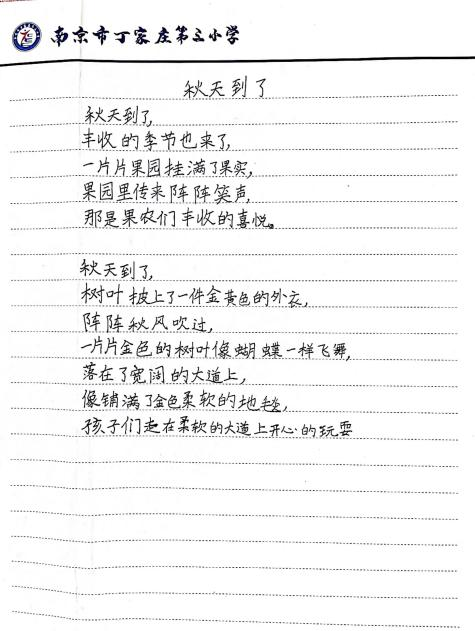 南京市丁家庄第三小学
秋天到了
秋天到了,
丰收的季节也来了,
一片片果园挂满了果实,
果园里传来阵阵笑声,
那是果农们丰收的喜悦。
秋天到了,
树叶披上了一件金黄色的外衣,
阵阵秋风吹过,
一片片金色的树叶像蝴蝶一样飞舞,
落在了宽阔的大道上,
像铺满了金色柔软的地毯,
孩子们走在柔软的大道上开心的玩耍